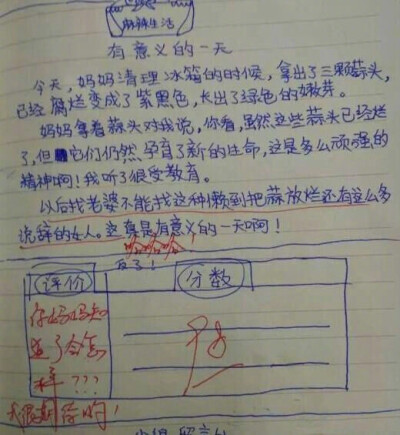 麻辣生活
有意义的一天
今天，妈妈清理冰箱的时候，拿出了三颗蒜头，
已经腐烂变成了紫黑色，长出了绿色的嫩芽。
妈妈拿着蒜头对我说，你看，虽然这些蒜头已经烂
了，但它们仍然孕育了新的生命，这是多么顽强的
精神啊！我听了很受教育。
以后找老婆不能找这种懒到把蒜放烂还有这么多
说辞的女人。这真是有意义的一天啊！
哈哈哈！
评价
分数
你妈妈知
道了会怎
样???
我很期待哟！